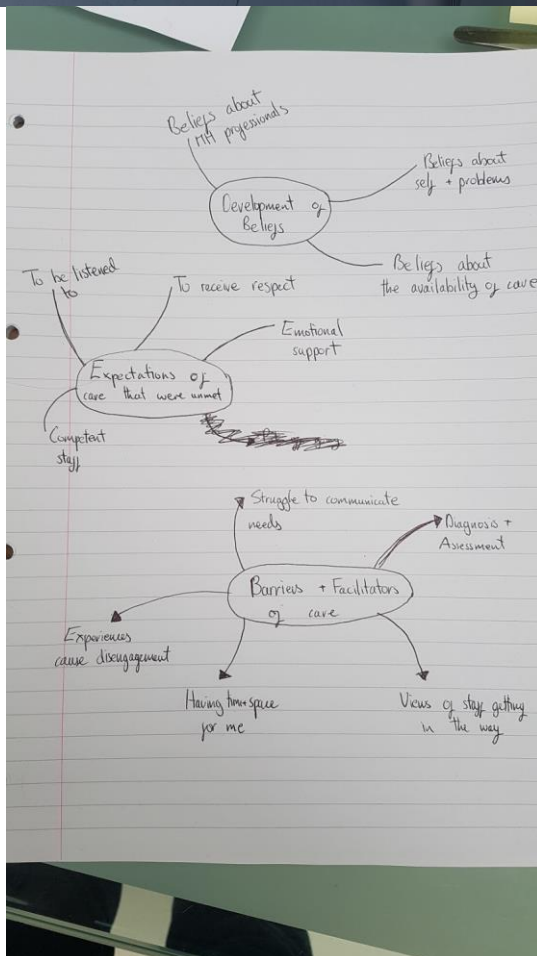 Beliefs about
MH professionals
Development of
Beliefs
Beliefs about
self + problems
Beliefs about
the availability of care
To be listened
to
To receive respect
Emotional
support
Expectations of
care that were unmet
Competent
staff
Struggle to communicate
needs
Diagnosis +
Assessment
Barriers + Facilitators
of care
Experiences
cause disengagement
Having time + space
for me
Views of staff getting
in the way